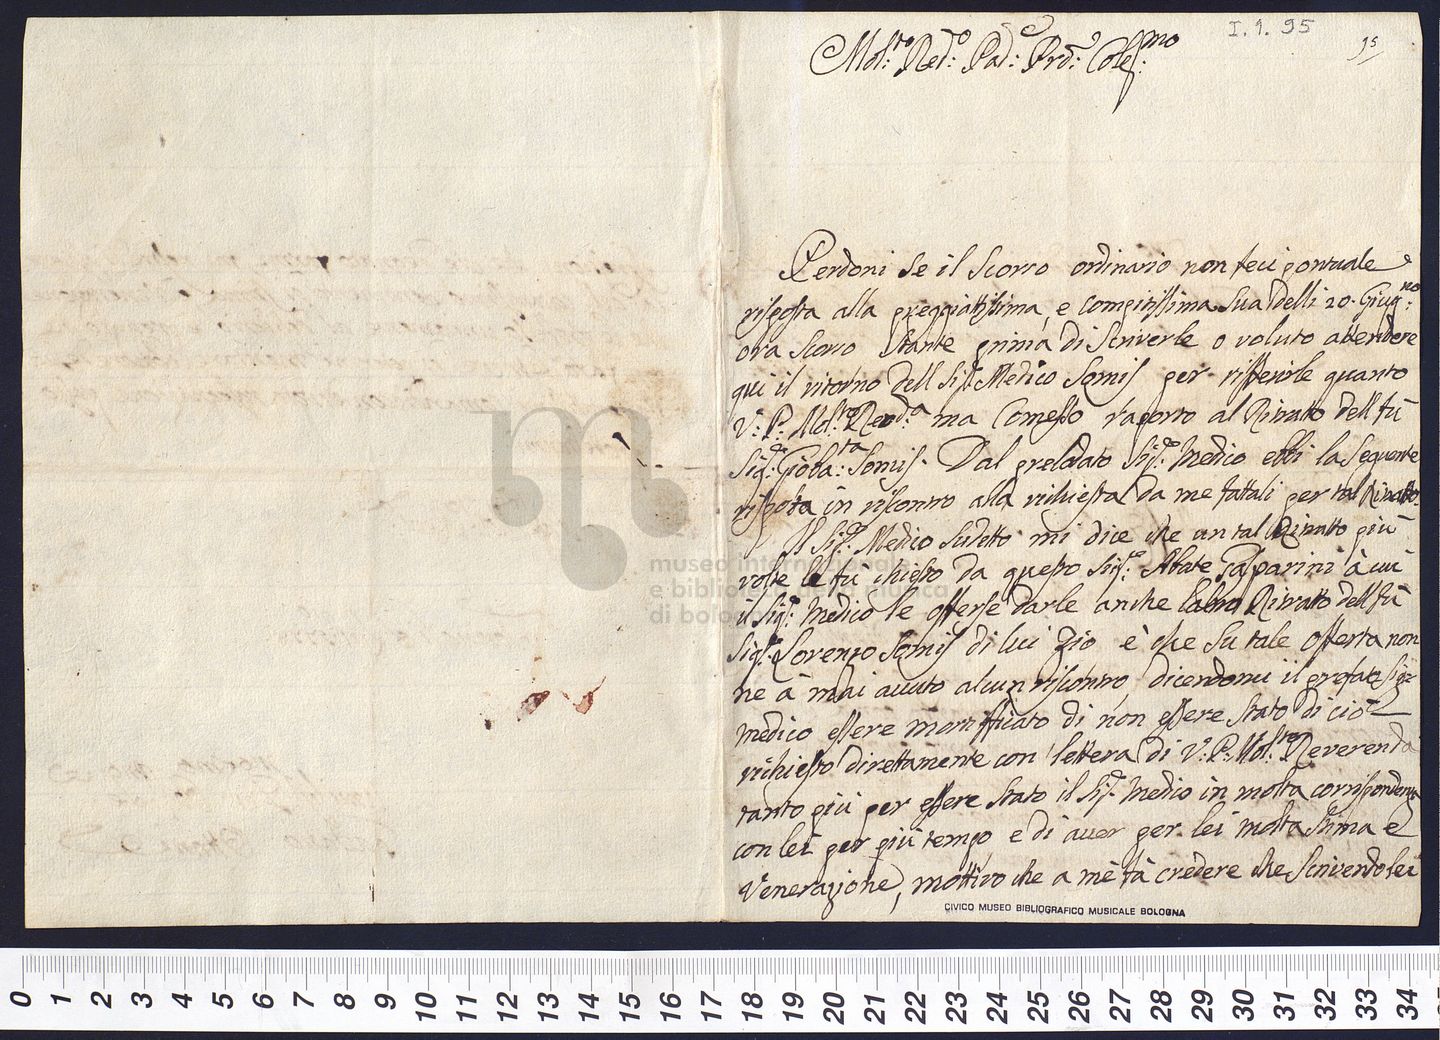 I.1.95
95
Mol:to Red:o Pad:e Prd:e Colef:mo
Perdoni se il Scorso ordinario non feci pontuale
risposta alla preggiattissima, e compitissima sua delli 20. Giug:no
ora scorso stante prima di Scriverle o voluto attendere
qui il ritorno dell Sig.r Medico Somis per rifferirle quanto
V: P: Mol:to Rend:a ma Comesso raporto al Ritratto dell fù
Sig:r Gioba:ta Somis. Dal prelodato Sig:r Medico ebbi la seguente
risposta in riscontro alla richiesta da me fattali per tal Ritratto.
Il Sig:r Medico sudetto mi dice che un tal Ritratto più
volte le fù chiesto da questo Sig:r Abate Gasparini à cui
il Sig:r Medico le offerse darle anche l'altro Ritratto dell fù
Sig:r Lorenzo Somis di lui Zio è che su tale offerta non
ne à mai avuto alcun riscontro, dicendomi il prefato Sig:r
Medico essere mortifficato di non essere stato di ciò
richiesto direttamente con lettera di V: P: Mol:to Reverenda
tanto più per essere stato il Sig:r Medico in molta corrispondenza
con lei per più tempo e di aver per lei molta stima e
Venerazione, mottivo che a mè fà credere che scrivendo lei
CIVICO MUSEO BIBLIOGRAFICO MUSICALE BOLOGNA
museo internazionale
e biblioteca della musica
di bologna
0 1 2 3 4 5 6 7 8 9 10 11 12 13 14 15 16 17 18 19 20 21 22 23 24 25 26 27 28 29 30 31 32 33 34